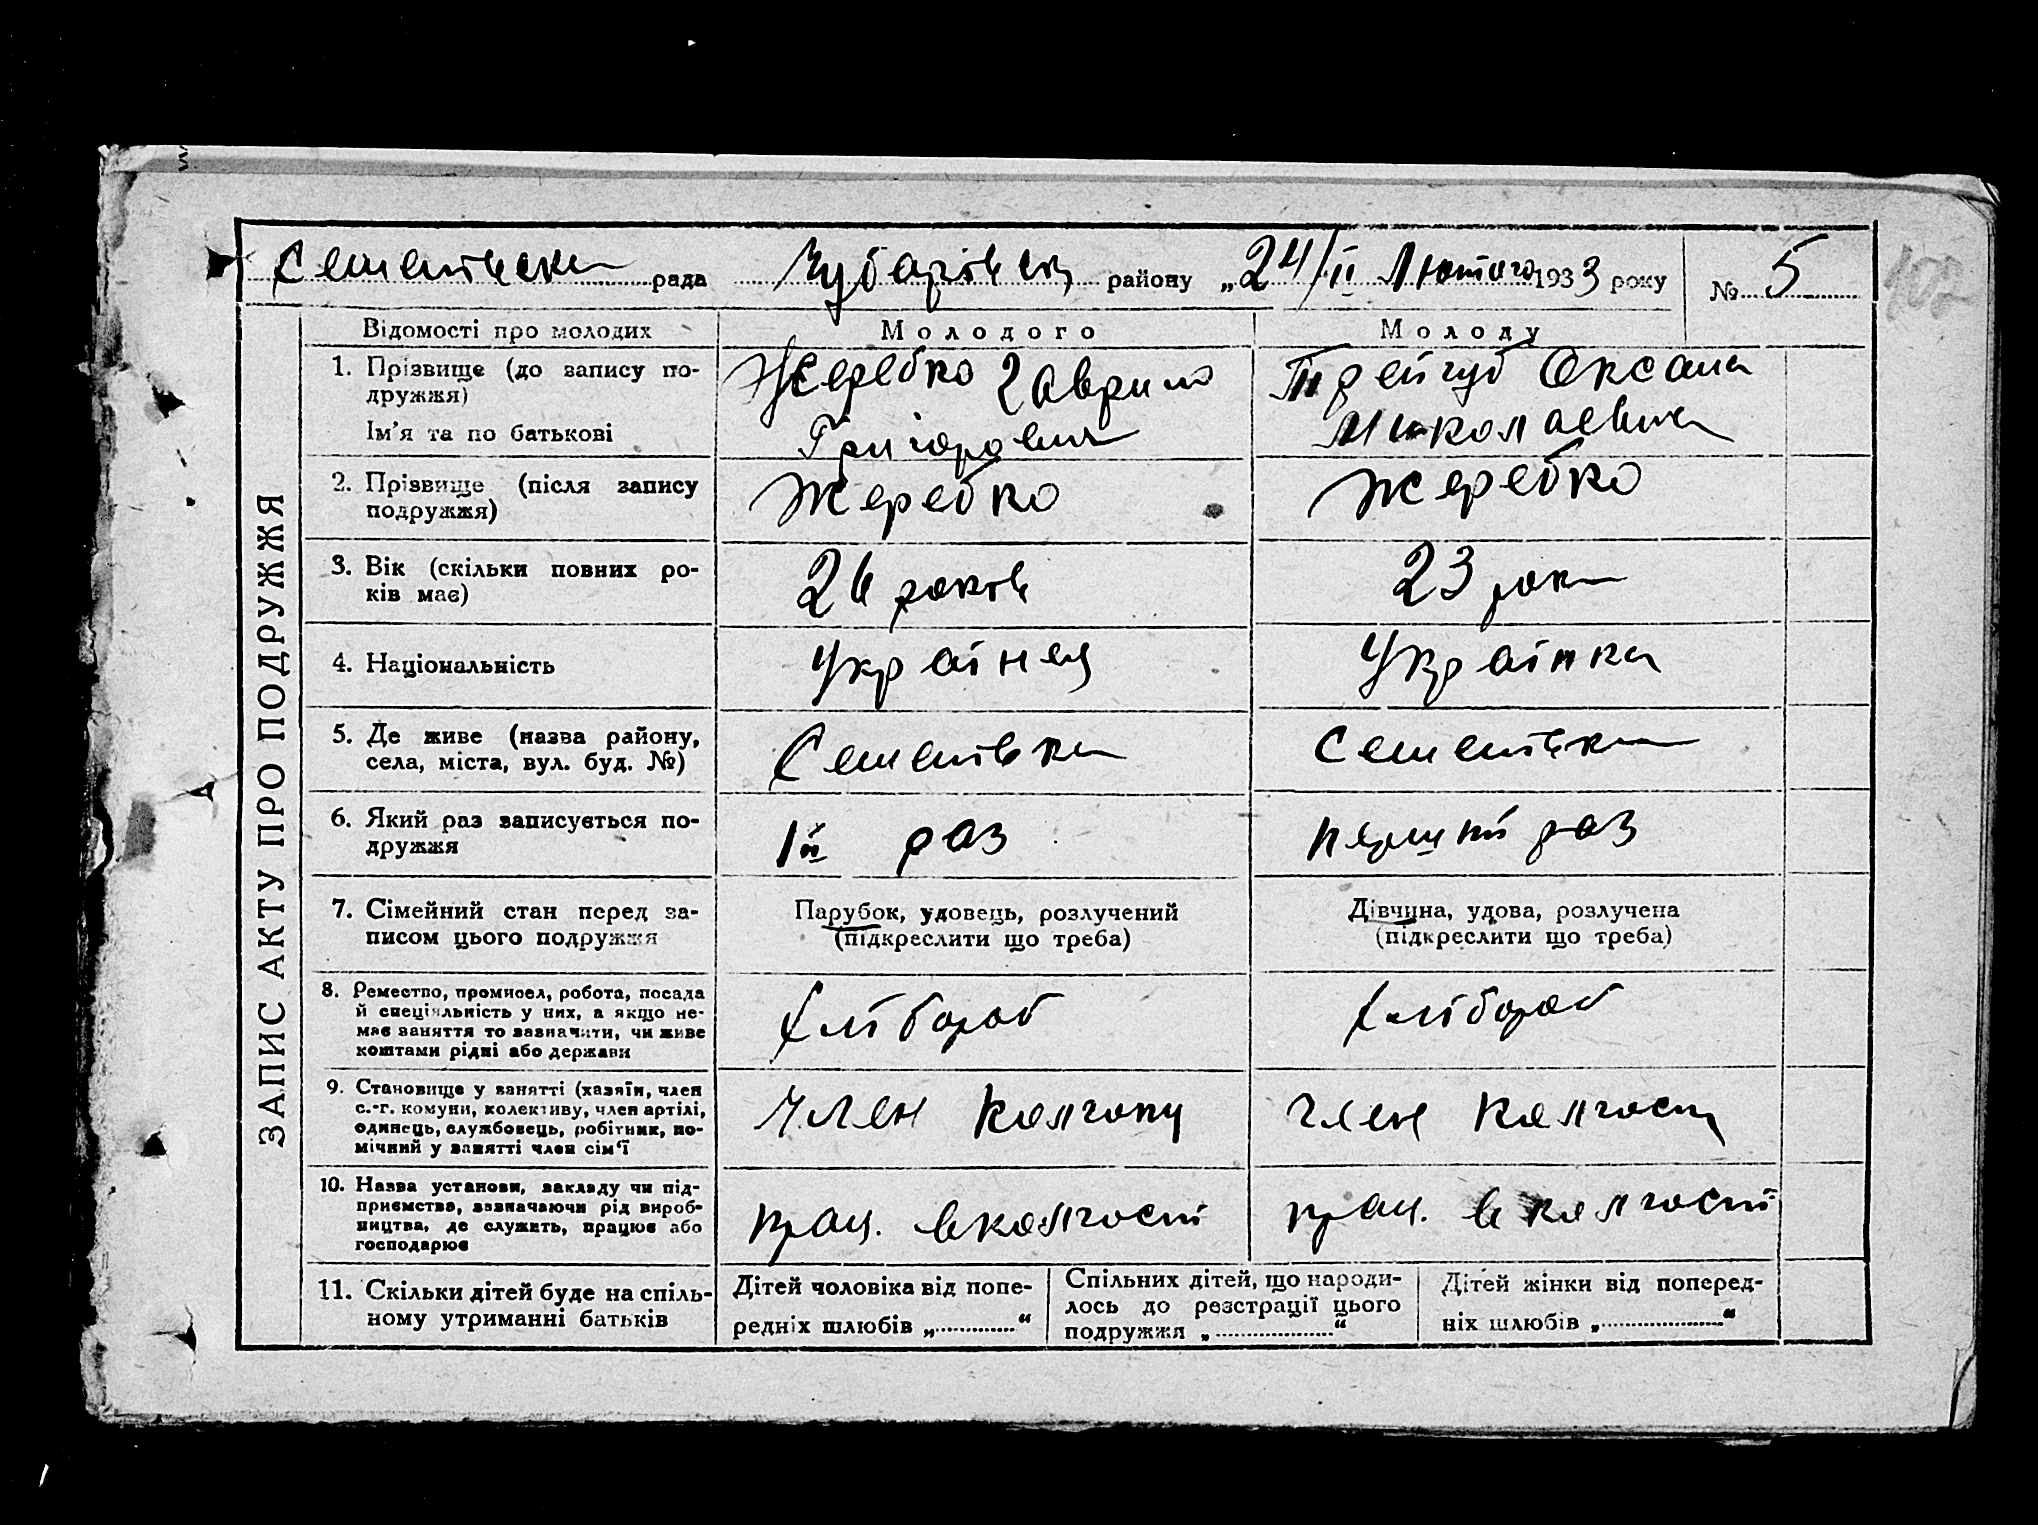 Семенівська рада Чубарівськ району „24/II Лютого 1933 року № 5
ЗАПИС АКТУ ПРО ПОДРУЖЖЯ
Відомості про молодих Молодого Молоду
1. Прізвище (до запису по-
дружжя)
Ім'я та по батькові
Жеребко Гаврило
Григорович
Оксана
Миколаевна
2. Прізвище (після запису
подружжя)
Жеребко
Жеребко
3. Вік (скільки повних ро-
ків має)
26 років
23 роки
4. Національність
Українец
Українка
5. Де живе (назва району,
села, міста, вул. буд. №)
Семенівка
Семенівка
6. Який раз записується по-
дружжя
1й раз
перший раз
7. Сімейний стан перед за-
писом цього подружжя
Парубок, удовець, розлучений
(підкреслити що треба)
Дівчина, удова, розлучена
(підкреслити що треба)
8. Ремество, промисел, робота, посада
й спеціяльність у них, а якщо не-
має заняття то зазначити, чи живе
коштами рідні або держави
Хлібороб
Хлібороб
9. Становище у занятті (хазяїн, член
с.-г. комуни, колективу, член артілі,
одинець, службовець, робітник, по-
мічний у занятті член сім'ї
Член колгоспу
член колгоспу
10. Назва установи, закладу чи під-
приємства, зазначаючи рід вироб-
ництва, де служить, працює або
господарює
прац. в колгоспі
прац. в колгоспі
11. Скільки дітей буде на спіль-
ному утриманні батьків
Дітей чоловіка від попе-
редніх шлюбів „............“
Спільних дітей, що народи-
лось до реєстрації цього
подружжя „..................“
Дітей жінки від поперед-
ніх шлюбів „..................“